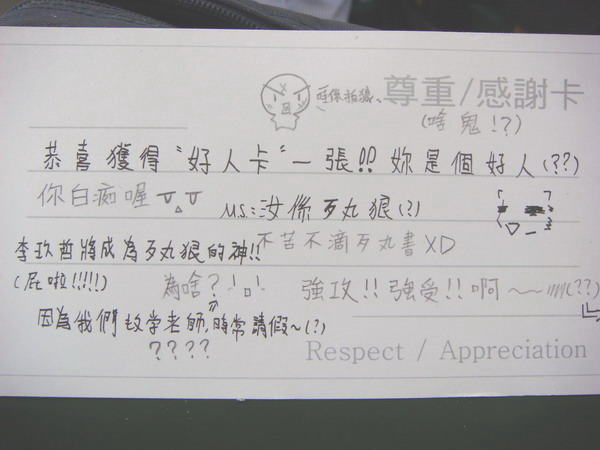 尊重/感謝卡
(啥鬼!?)
恭喜獲得“好人卡”一張!! 妳是個好人(??)
你白痴喔
MS:汝係歹丸狼(?)
李玖哲將成為歹丸狼的神!!
不苦不滴歹丸書XD
(屁啦!!!!!)
為啥?
強攻!! 強受!! 啊~~
(??)
因為我們教学老師,時常請假~(?)
????
Respect / Appreciation